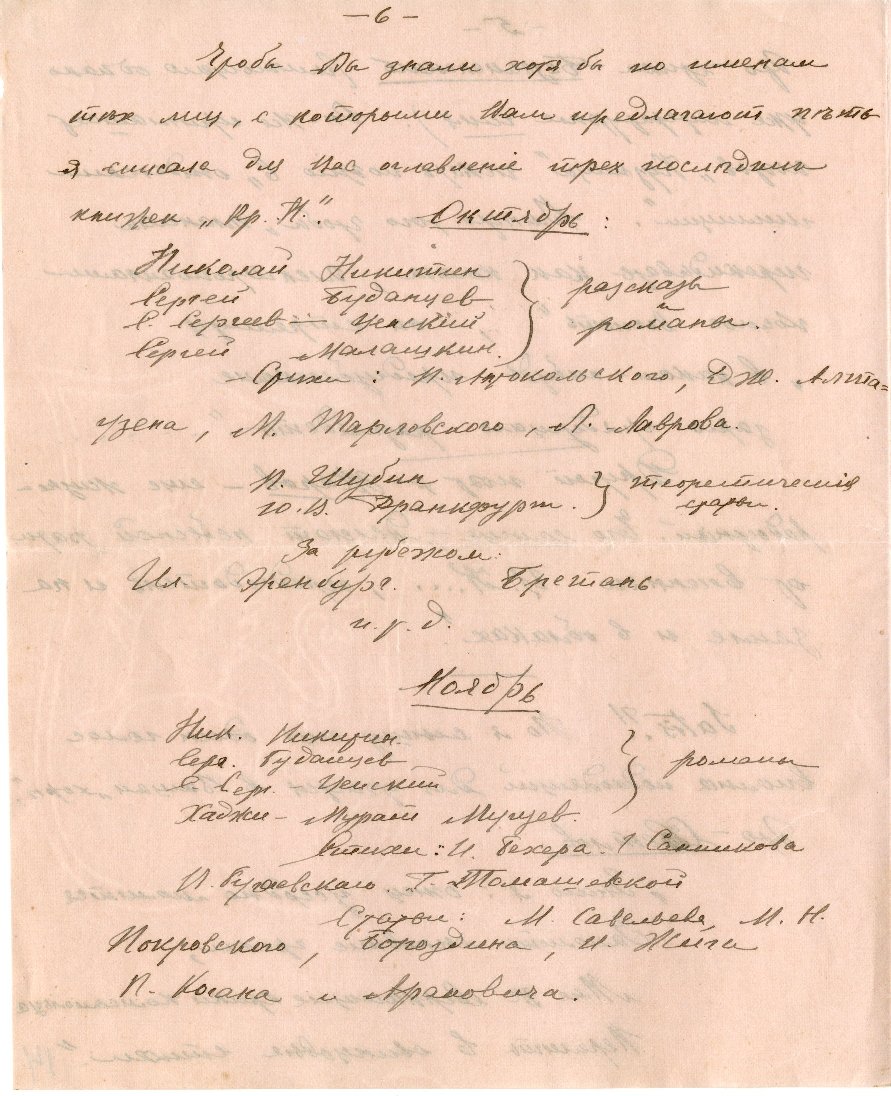 — 6 —
Чтобы Вы знали хотя бы по именам
тѣх лиц, с которыми Вам предлагают пѣть
я списала для Вас оглавленіе трех послѣдних
книжек „Кр. Н.“. Октябрь:
Николай Никитин
Сергей Буданцев
С. Сергеев-Ценский
Сергей Малашкин.
} разсказы и романы.
Стихи: П. Антокольского, Дж. Алта-
узена, М. Тарловского, Л. Лаврова.
П. Шубин
Ю. В. Франкфурт.
} теоретическія статьи.
За рубежом:
Ил. Эренбург. Бретань
и. т. д.
Ноябрь
Ник. Никитин.
Серг. Буданцев
С. Серг. Ценский
Хаджи-Мурат Мугуев.
} романы
Стихи: И. Бехера. Г Санникова
И. Пугаевскаго. Г. Томашевской
Статьи: М. Савельева, М. Н.
Покровского, Бороздина, И. Жиги
П. Когана и Араповича.